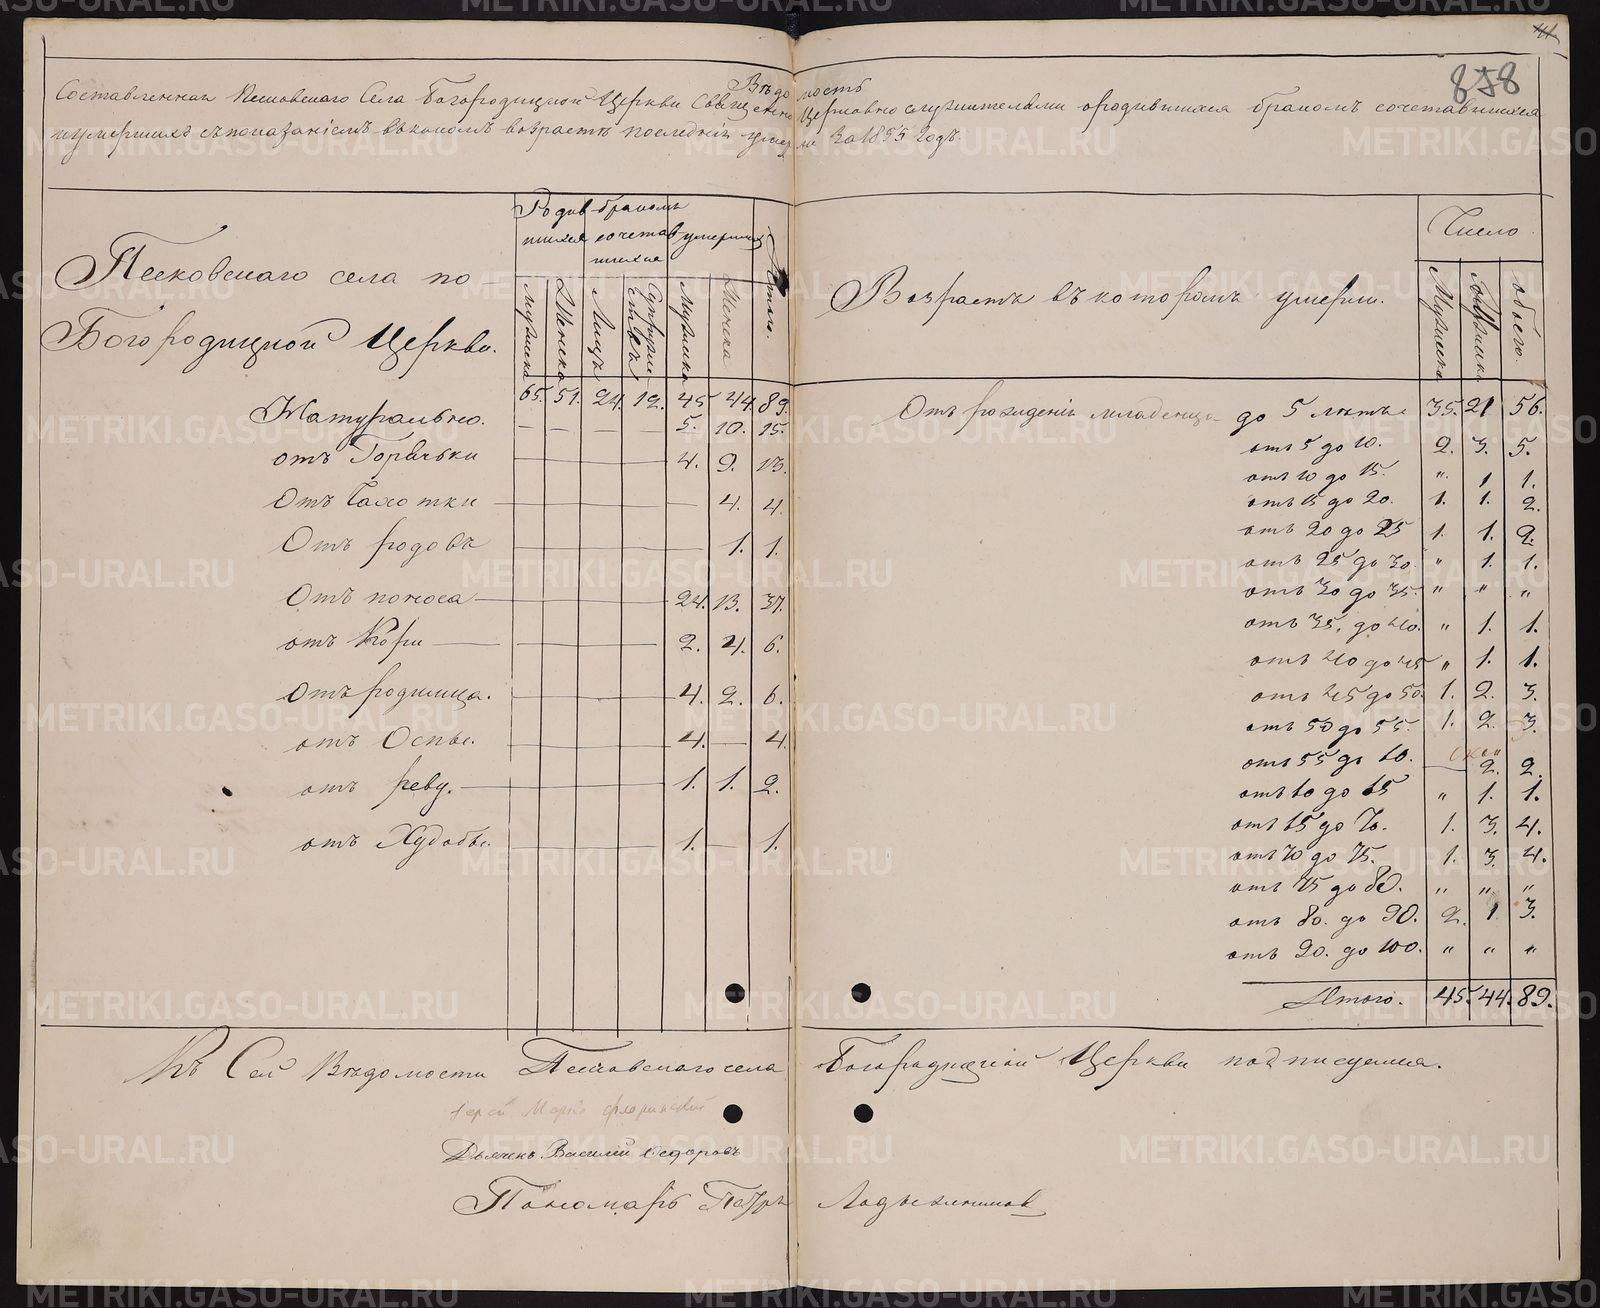 858
Вѣдомость
Составленная Песковскаго Села Богородицкой Церкви Священно Церковно служителями о родившихся бракомъ сочетавшихся
и умершихъ съ показаніемъ въ какомъ возрастѣ последніи умерли За 1855 Годъ.
Песковскаго села по
Богородицкой Церкви.
Родив бракомъ
шихся сочетав умершихъ
шихся
Итого.
Мужска
Женска
Лицъ
Супруже
ствъ
Мужика
Женска
65. 51. 24. 12. 45. 44. 89.
Натурально. 5. 10. 15.
отъ Горячьки 4. 9. 13.
Отъ Чахотки 4. 4.
Отъ родовъ 1. 1.
Отъ поноса 24. 13. 37.
отъ Кори 2. 4. 6.
Отъ родимца. 4. 2. 6.
отъ Оспы. 4. — 4.
отъ реву. 1. 1. 2.
отъ Худобы. 1. — 1.
Возрастъ въ которомъ умерли.
Число
Мужска
Женска
обоего.
Отъ рожденія младенца до 5 лѣтъ 35. 21 56.
отъ 5 до 10. 2. 3. 5.
отъ 10 до 15. " 1 1.
отъ 15 до 20. 1. 1. 2.
отъ 20 до 25 1. 1. 2.
отъ 25 до 30. " 1. 1.
отъ 30 до 35. " " "
отъ 35. до 40. " 1. 1.
отъ 40 до 45 " 1. 1.
отъ 45 до 50. 1. 2. 3.
отъ 50 до 55. 1. 2. 3.
отъ 55 до 60. — 2. 2.
отъ 60 до 65 " 1. 1.
отъ 65 до 70. 1. 3. 4.
отъ 70 до 75. 1. 3. 4.
отъ 75 до 80. " " "
отъ 80. до 90. 2. 1. 3.
отъ 90. до 100. " " "
Итого. 45. 44. 89.
Къ Сей Вѣдомости Песковскаго села Богородицкой Церкви подписуемся.
Іерей Марко Флоринский
Дьячекъ Василій Федоровъ
Пономарь Петръ
METRIKI.GASO-URAL.RU